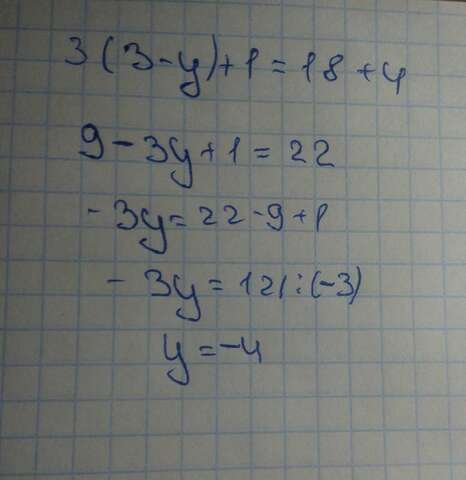 3(3-y)+1=18+4
9-3y+1=22
-3y=22-9+1
-3y=12|:(-3)
y=-4